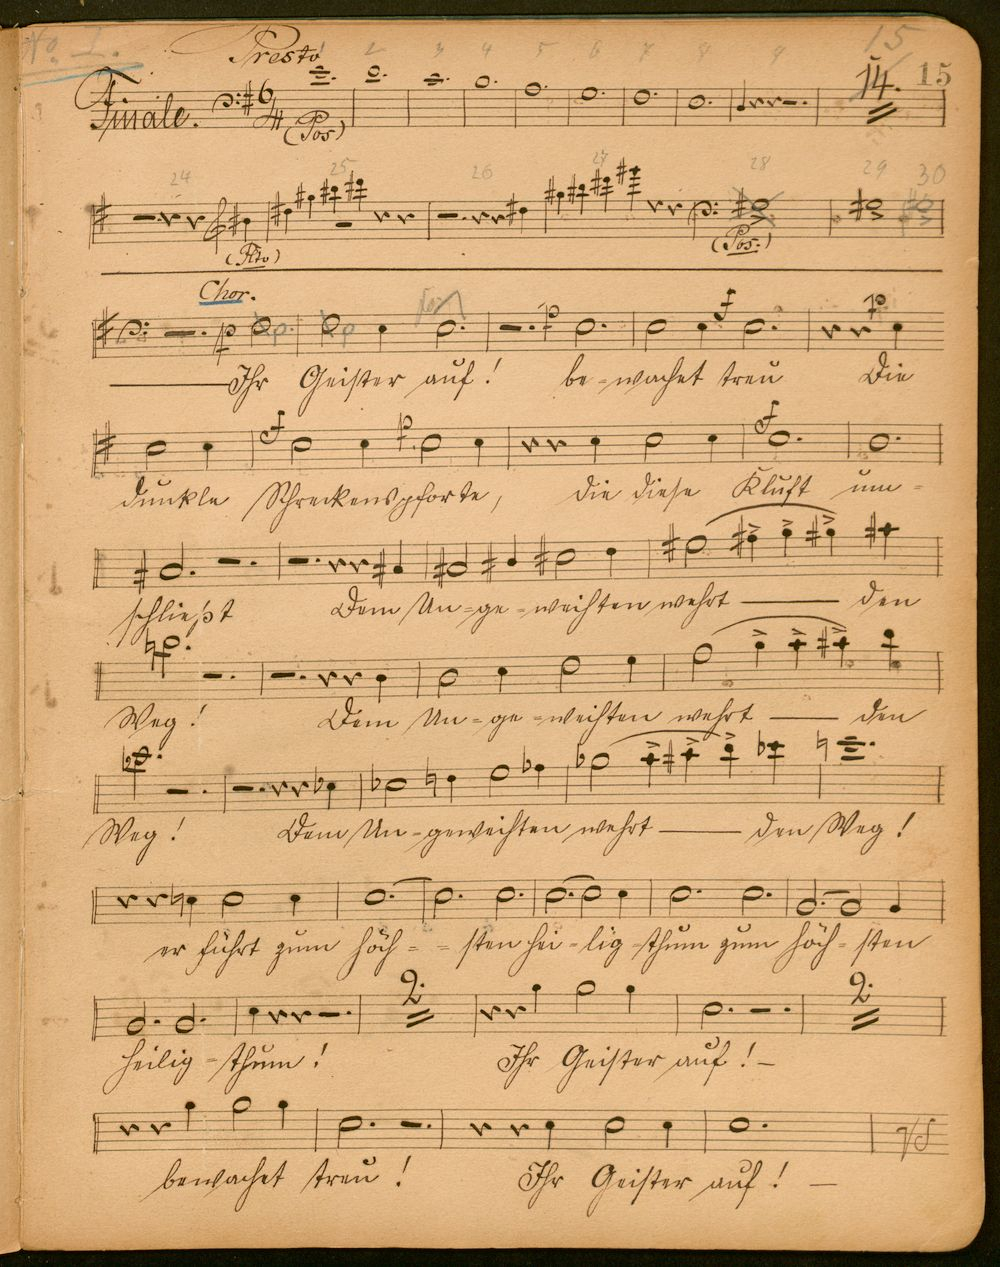 No. 1.
Presto
1 2 3 4 5 6 7 8 9
15
14.
15
Finale.
6
4
(Pos)
24 25 26 27 28 29 30
(Pos.)
Chor.
p p f p
Ihr Geister auf! be-wachet treu Die
f p f
dunkle Schreckenspforte, die diese Kluft um-
schließt Dem Un-ge-weihten wehrt — den
Weg! Dem Un-ge-weihten wehrt — den
Weg! Dem Un-geweihten wehrt — den Weg!
er führt zum höch--sten hei-lig-thum zum höch-sten
2. 2.
heilig-thum! Ihr Geister auf!-
VS
bewachet treu! Ihr Geister auf! —